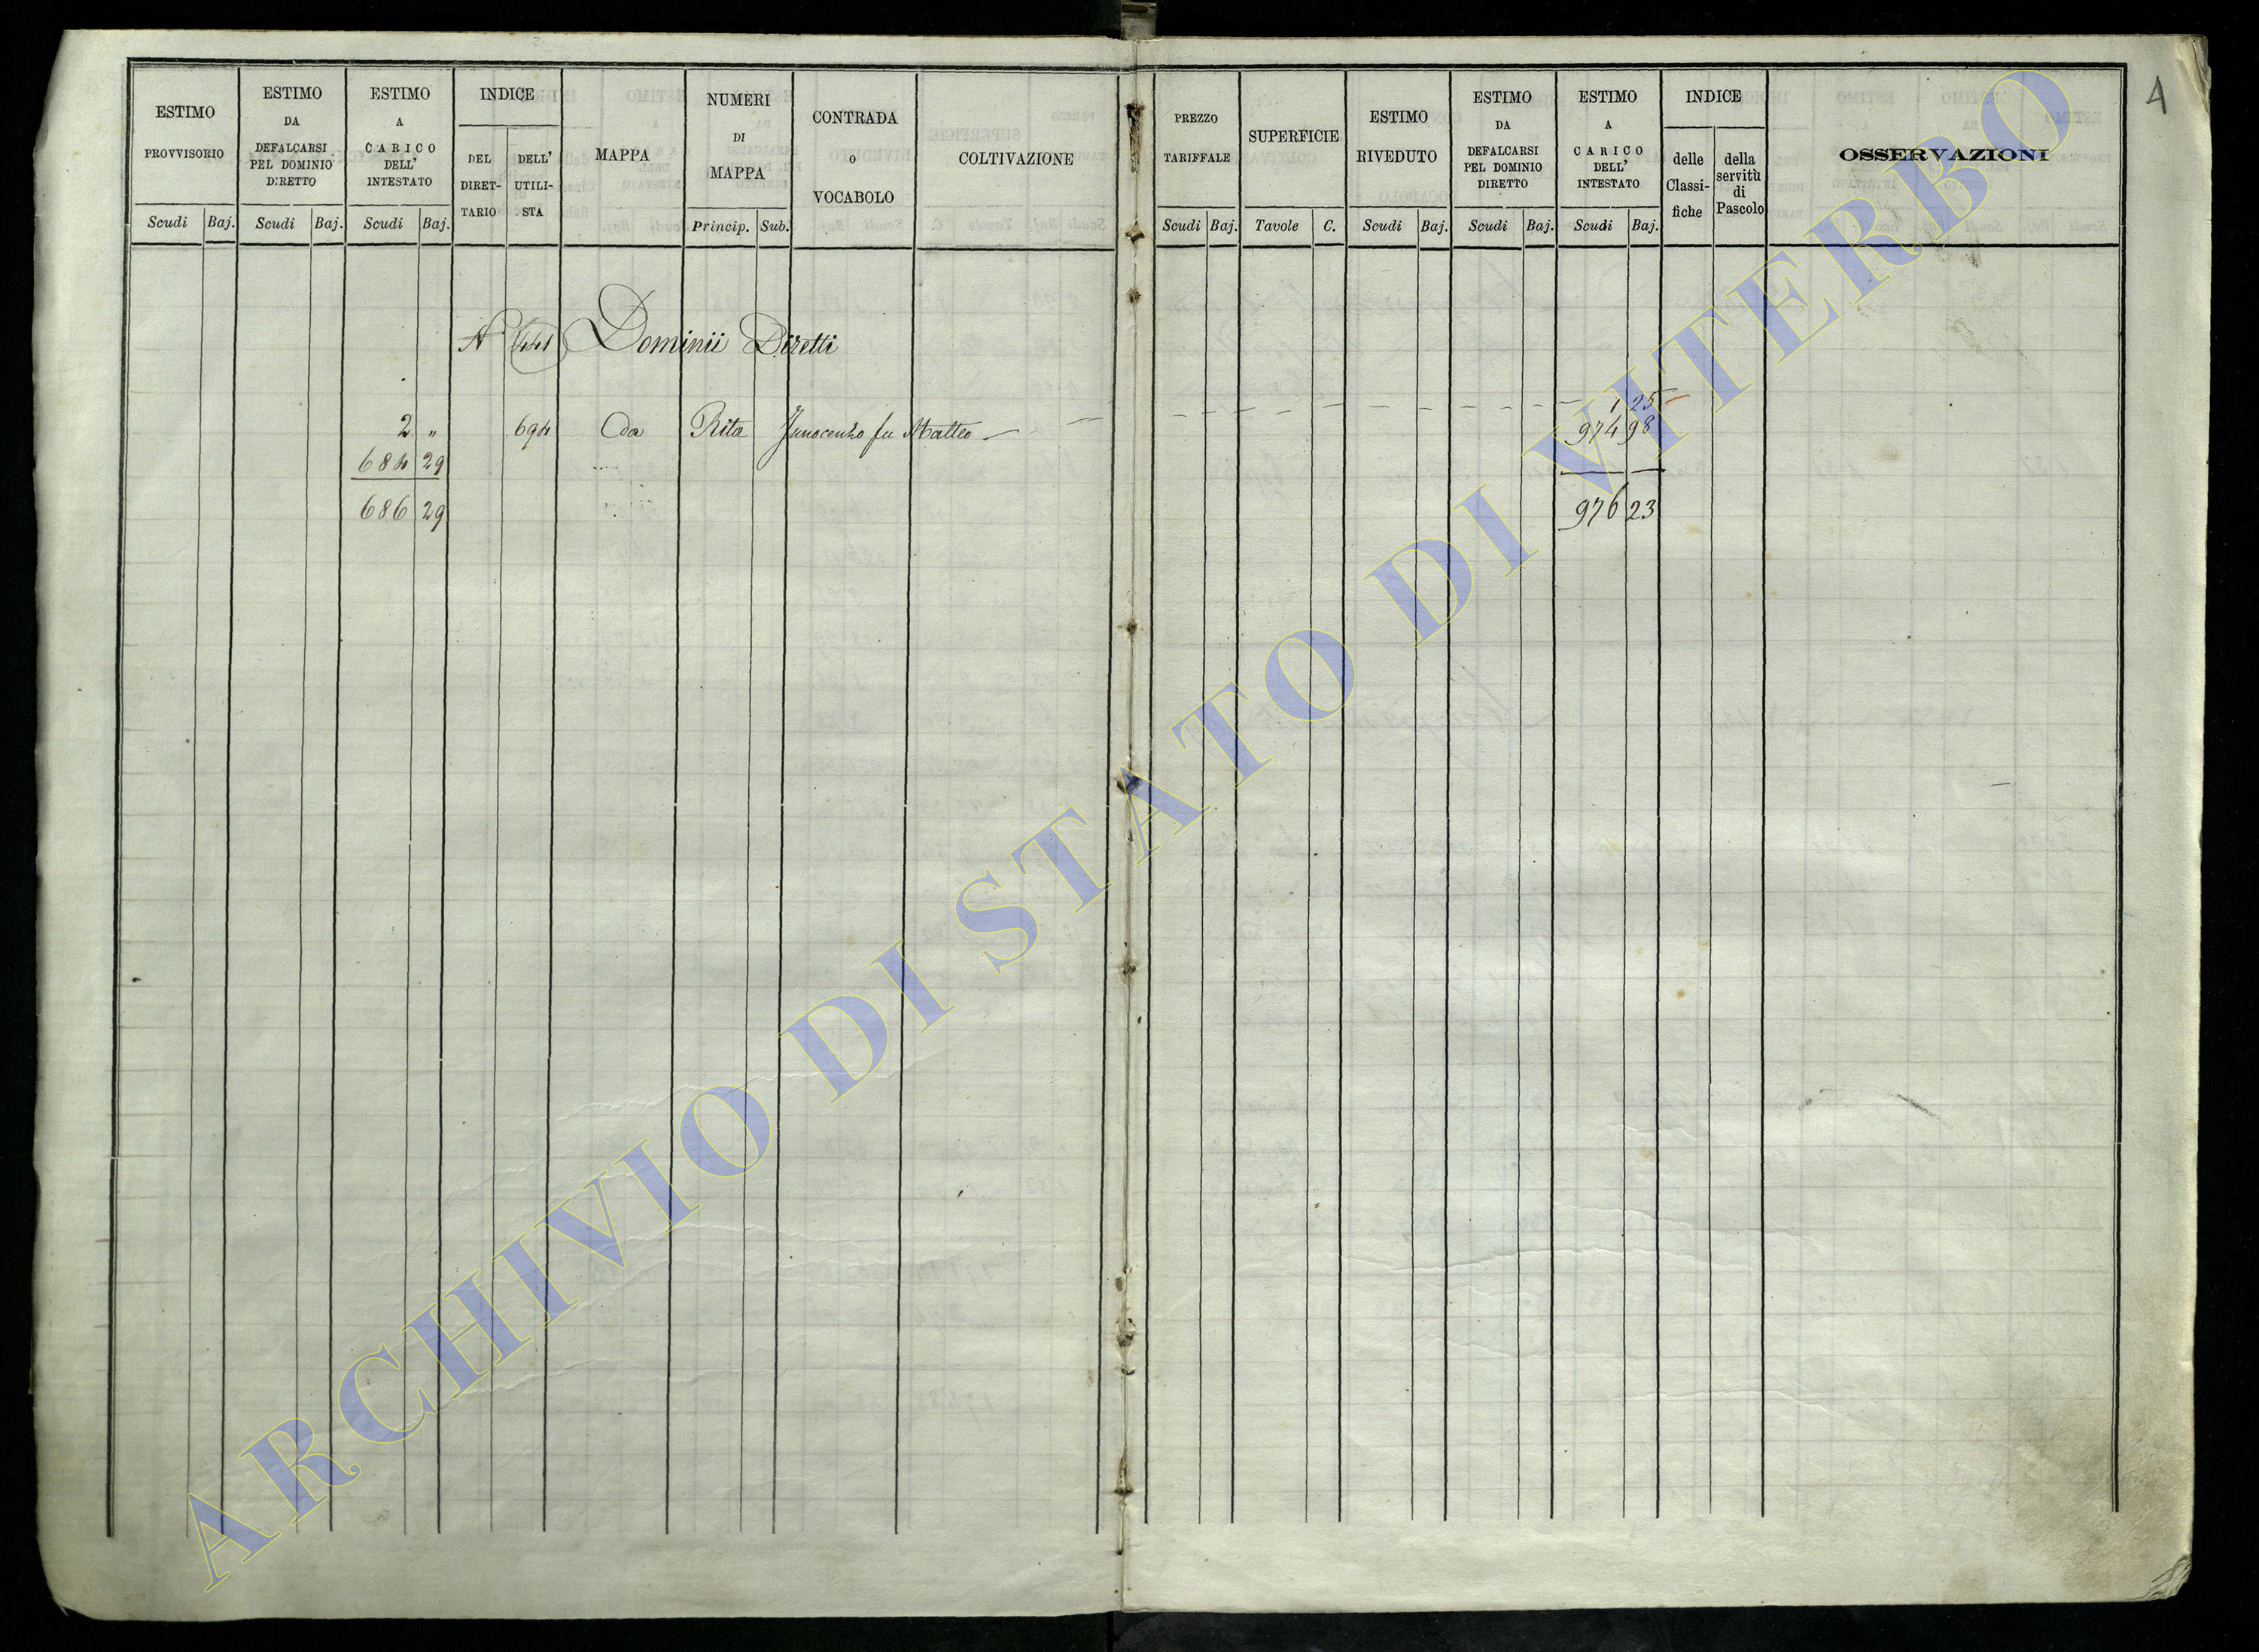 4
ESTIMO PROVVISORIO Scudi Baj.
ESTIMO DA DEFALCARSI PEL DOMINIO DIRETTO Scudi Baj.
ESTIMO A CARICO DELL' INTESTATO Scudi Baj.
INDICE DEL DIRET-TARIO DELL' UTILI-STA
MAPPA
NUMERI DI MAPPA Princip. Sub.
CONTRADA o VOCABOLO
COLTIVAZIONE
PREZZO TARIFFALE Scudi Baj.
SUPERFICIE Tavole C.
ESTIMO RIVEDUTO Scudi Baj.
ESTIMO DA DEFALCARSI PEL DOMINIO DIRETTO Scudi Baj.
ESTIMO A CARICO DELL' INTESTATO Scudi Baj.
INDICE delle Classi-fiche della servitù di Pascolo
OSSERVAZIONI
N° 441 Dominii Diretti
1 25
2 " 694 Da Rita Innocenzo fu Matteo 974 98
684 29
686 29 976 23
ARCHIVIO DI STATO DI VITERBO